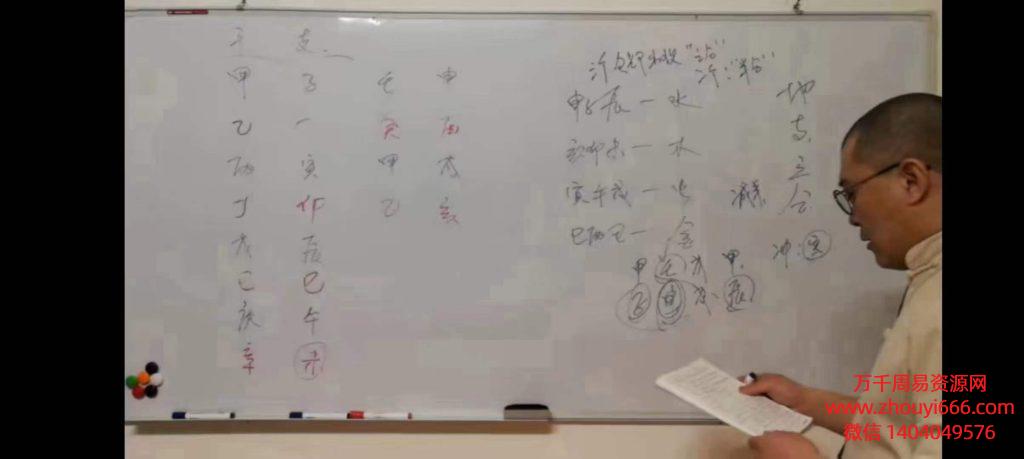 干 支
甲 子 壬 申
乙 癸 酉
丙 寅 甲 戌
丁 卯 乙 亥
戊 辰
己 巳
庚 午
辛 未
申子辰一水
亥卯未一木
寅午戌一火
巳酉丑一金
地支三合
甲 壬 戊 甲
子 申 戌 辰
冲:
万千周易资源网
www.zhouyi666.com
微信 1404049576